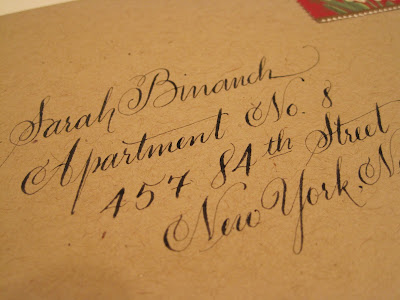 Sarah Binanch
Apartment No. 8
457 84th Street
New York, N